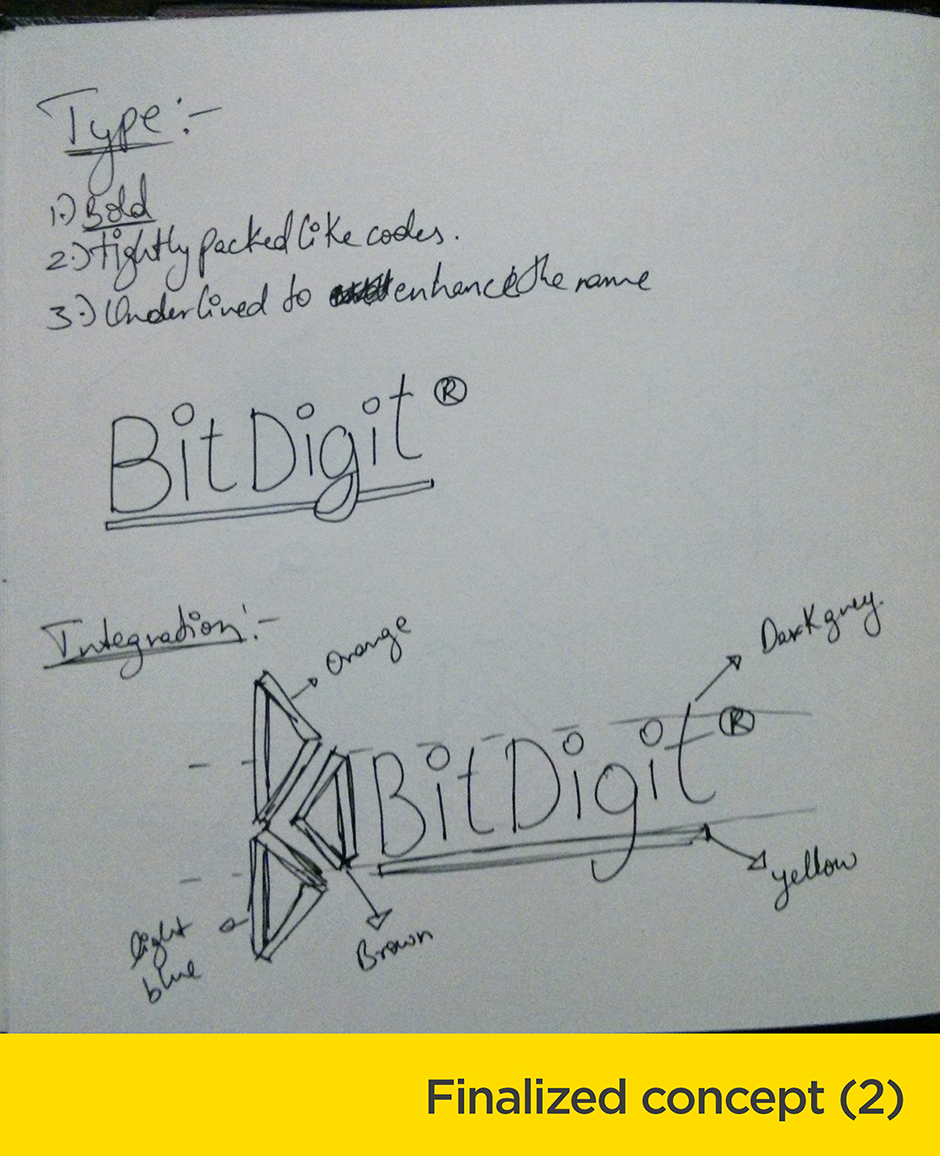 Type:-
1.) Bold
2.) tightly packed like codes.
3.) Underlined to enhance the name
BitDigit ®
Integration:-
Orange
Dark grey.
BitDigit ®
yellow
Brown
light
blue
Finalized concept (2)